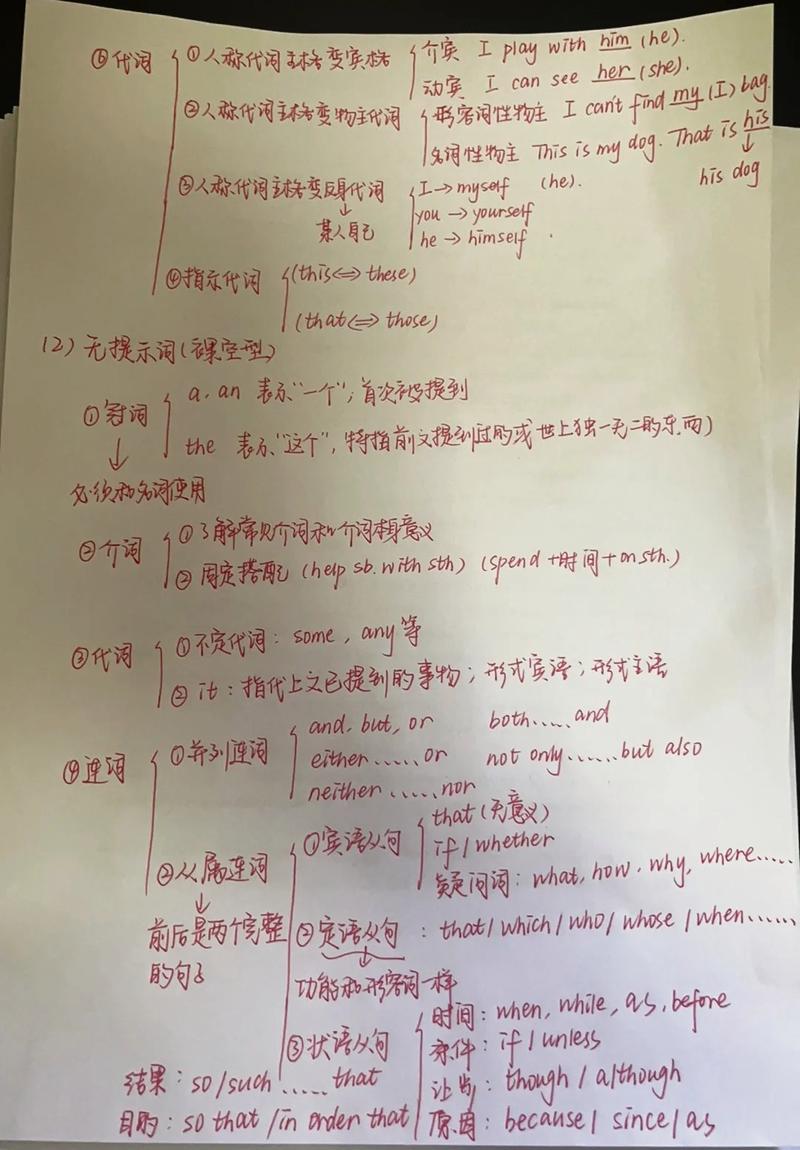 ⑥代词 ①人称代词主格变宾格 介宾 I play with him (he).
动宾 I can see her (she).
②人称代词主格变物主代词 形容词性物主 I can't find my (I) bag.
名词性物主 This is my dog. That is his
(he). his dog
③人称代词主格变反身代词 I→myself
某人自己 you→yourself
he→himself.
④指示代词 (this⇔these)
(that⇔those)
(2)无提示词(裸空型)
①冠词 a, an 表示"一个",首次被提到
the 表示"这个",特指前文提到过的或世上独一无二的东西)
必须和名词使用
②介词 ①了解常见介词和介词本身意义
②固定搭配 (help sb. with sth) (spend+时间+on sth.)
③代词 ①不定代词: some, any等
②it: 指代上文已提到的事物; 形式宾语; 形式主语
④连词 ①并列连词 and, but, or both……and
either……or not only……but also
neither……nor
②从属连词 ①宾语从句 that(无意义)
if/whether
疑问词: what, how, why, where……
前后是两个完整的句子
②定语从句: that/which/who/whose/when……
功能和形容词一样
③状语从句 时间: when, while, as, before
条件: if/unless
结果: so/such……that 让步: though/although
目的: so that/in order that 原因: because/since/as